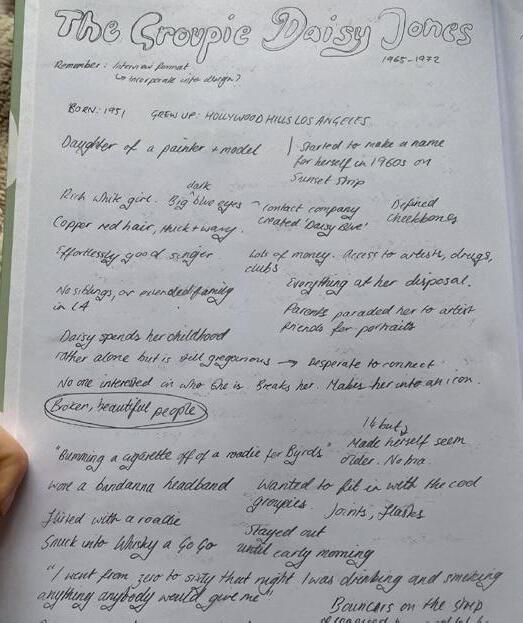 The Groupie Daisy Jones
1965-1972
Remember: Interview format
↳ incorporate into design?
BORN: 1951 GREW UP: HOLLYWOOD HILLS LOS ANGELES
Daughter of a painter + model
Started to make a name
for herself in 1960s on
Sunset strip
Rich white girl. Big dark blue eyes
contact company
created 'Daisy Blue'
Defined
Cheekbones
Copper red hair, thick + wavy.
Effortlessly good singer
Lots of money. Access to artists, drugs,
clubs
Everything at her disposal.
No siblings, or extended family
in LA
Parents paraded her to artist
friends for portraits
Daisy spends her childhood
rather alone but is still gregarious → Desperate to connect
No one interested in who She is. Breaks her. Makes her into an icon.
Broken, beautiful people
14 but
Made herself seem
older. No bra
"Bumming a cigarette off of a roadie for Byrds"
wore a bandanna headband
Wanted to fit in with the cool
groupies. Joints, flasks
flirted with a roadie
Snuck into Whisky a Go Go
Stayed out
until early morning
"I went from zero to sixty that night I was drinking and smoking
anything anybody would give me"
Bouncers on the strip